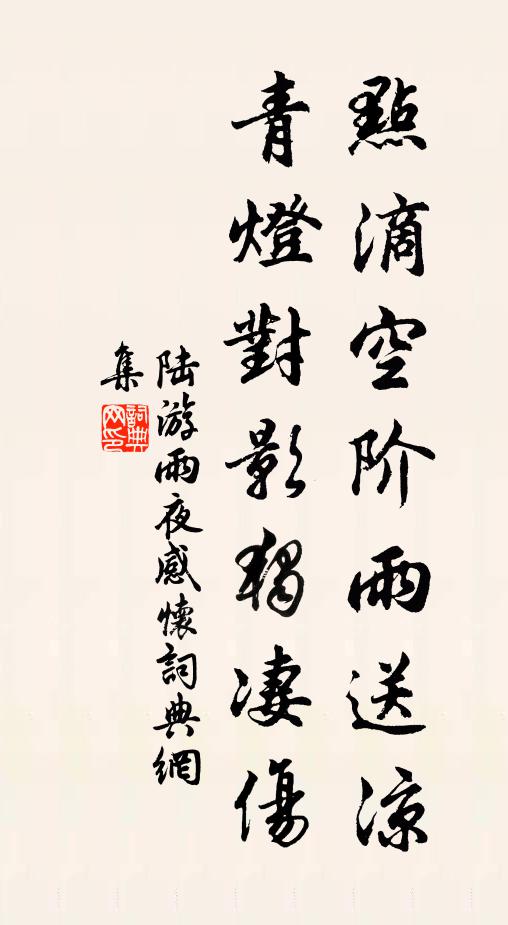 點滴空阶雨送凉
青燈對影獨凄傷
陆游雨夜感懷詞典網
集
詞典
网印